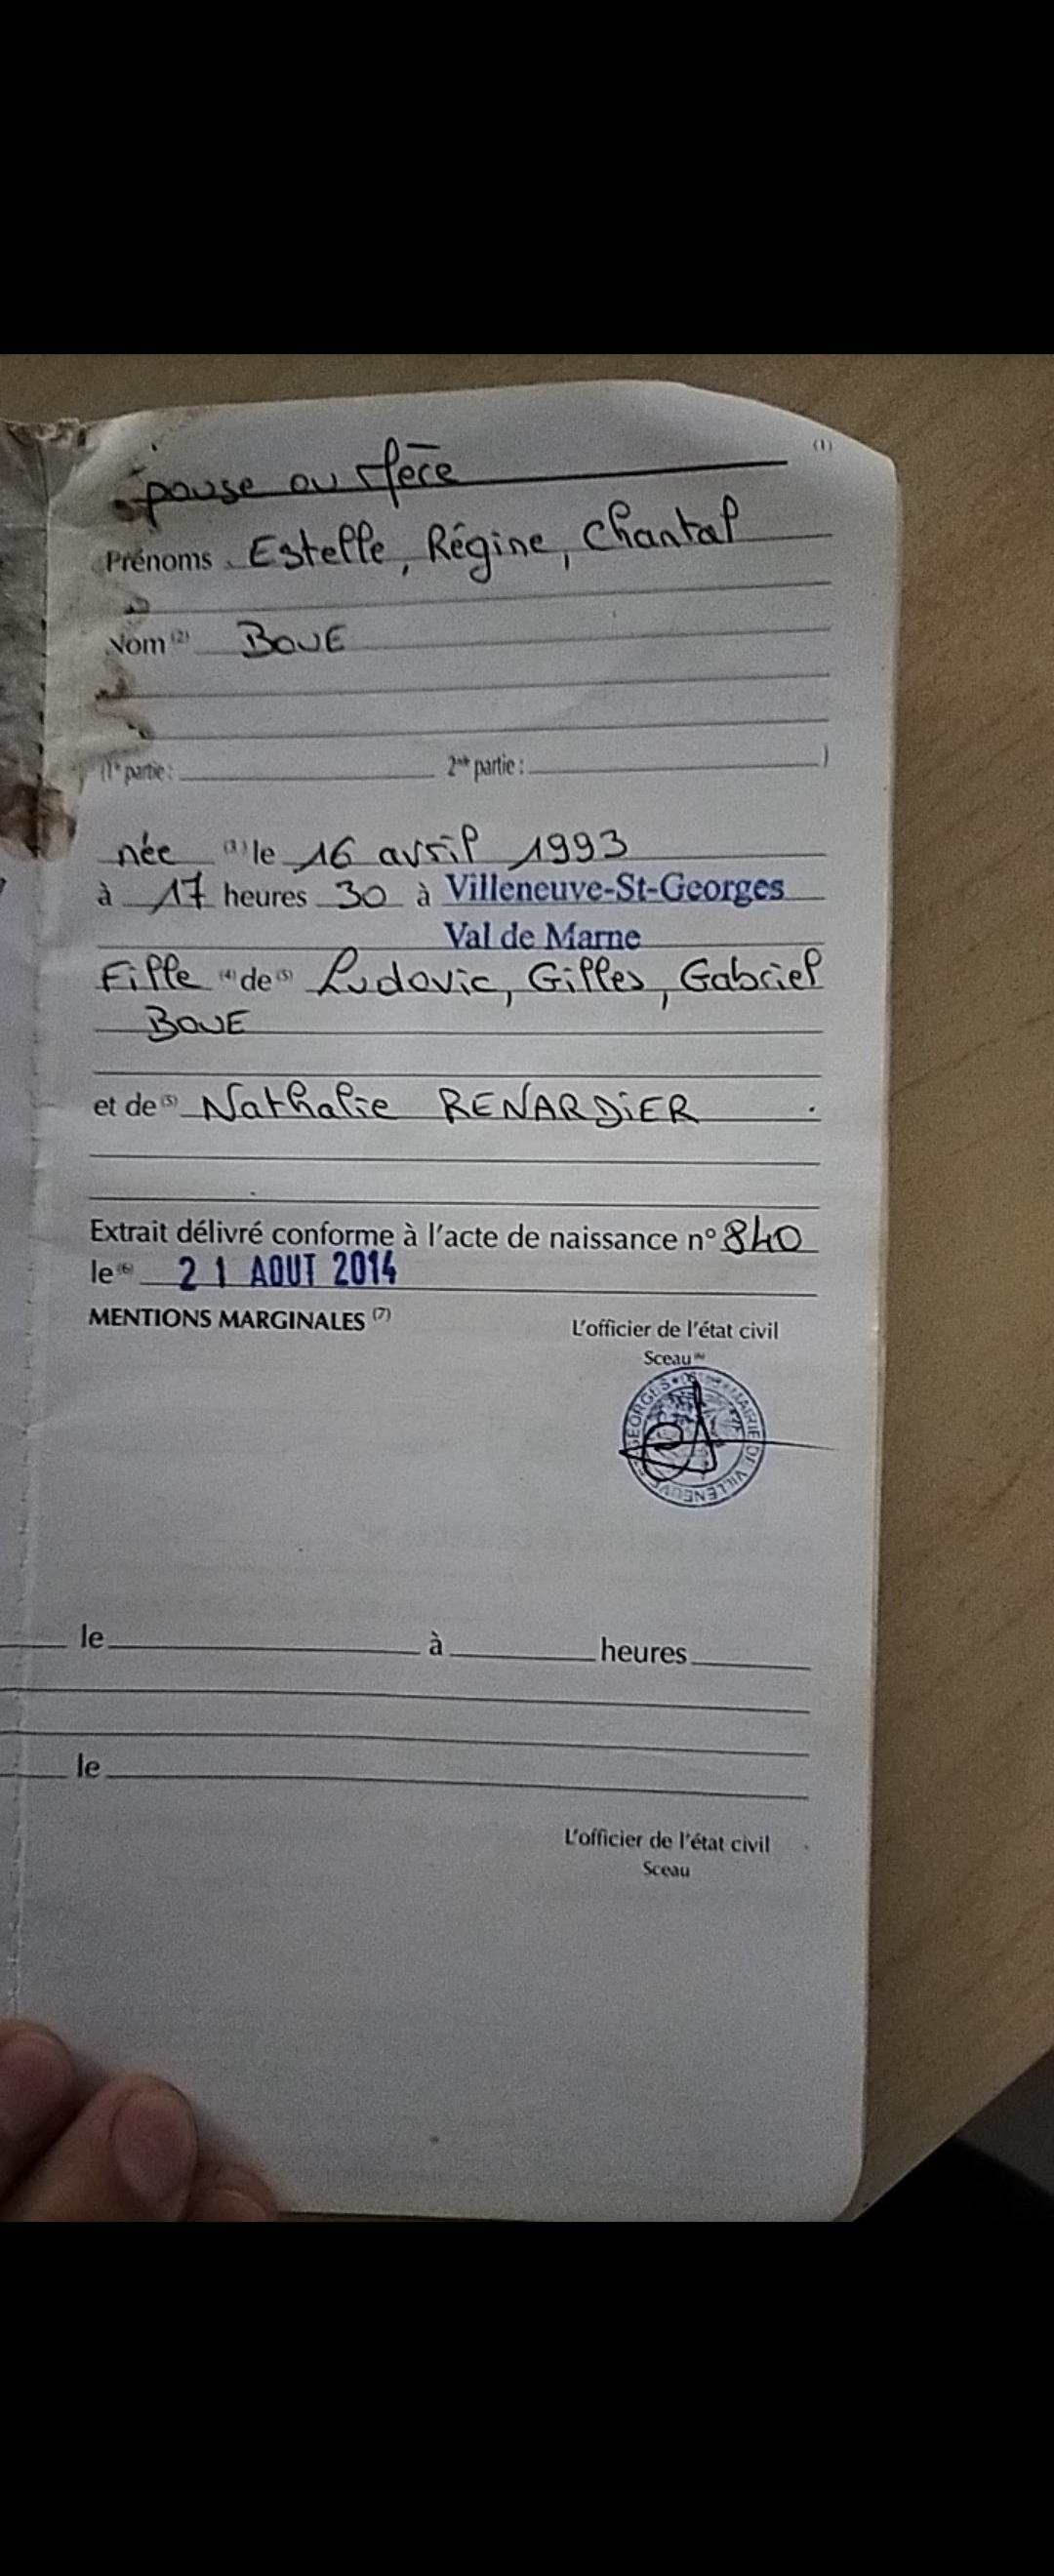 (1)
épouse ou Mère
Prénoms Estelle, Régine, Chantal
Nom (2) BOUE
(1re partie : 2nde partie : )
née (3) le 16 avril 1993
à 17 heures 30 à Villeneuve-St-Georges
Val de Marne
Fille (4) de (5) Ludovic, Gilles, Gabriel
BOUE
et de (5) Nathalie RENARDIER
Extrait délivré conforme à l'acte de naissance n° 840
le (6) 21 AOUT 2014
MENTIONS MARGINALES (7)
L'officier de l'état civil
Sceau
MAIRIE DE VILLENEUVE GEORGES
le à heures
le
L'officier de l'état civil
Sceau